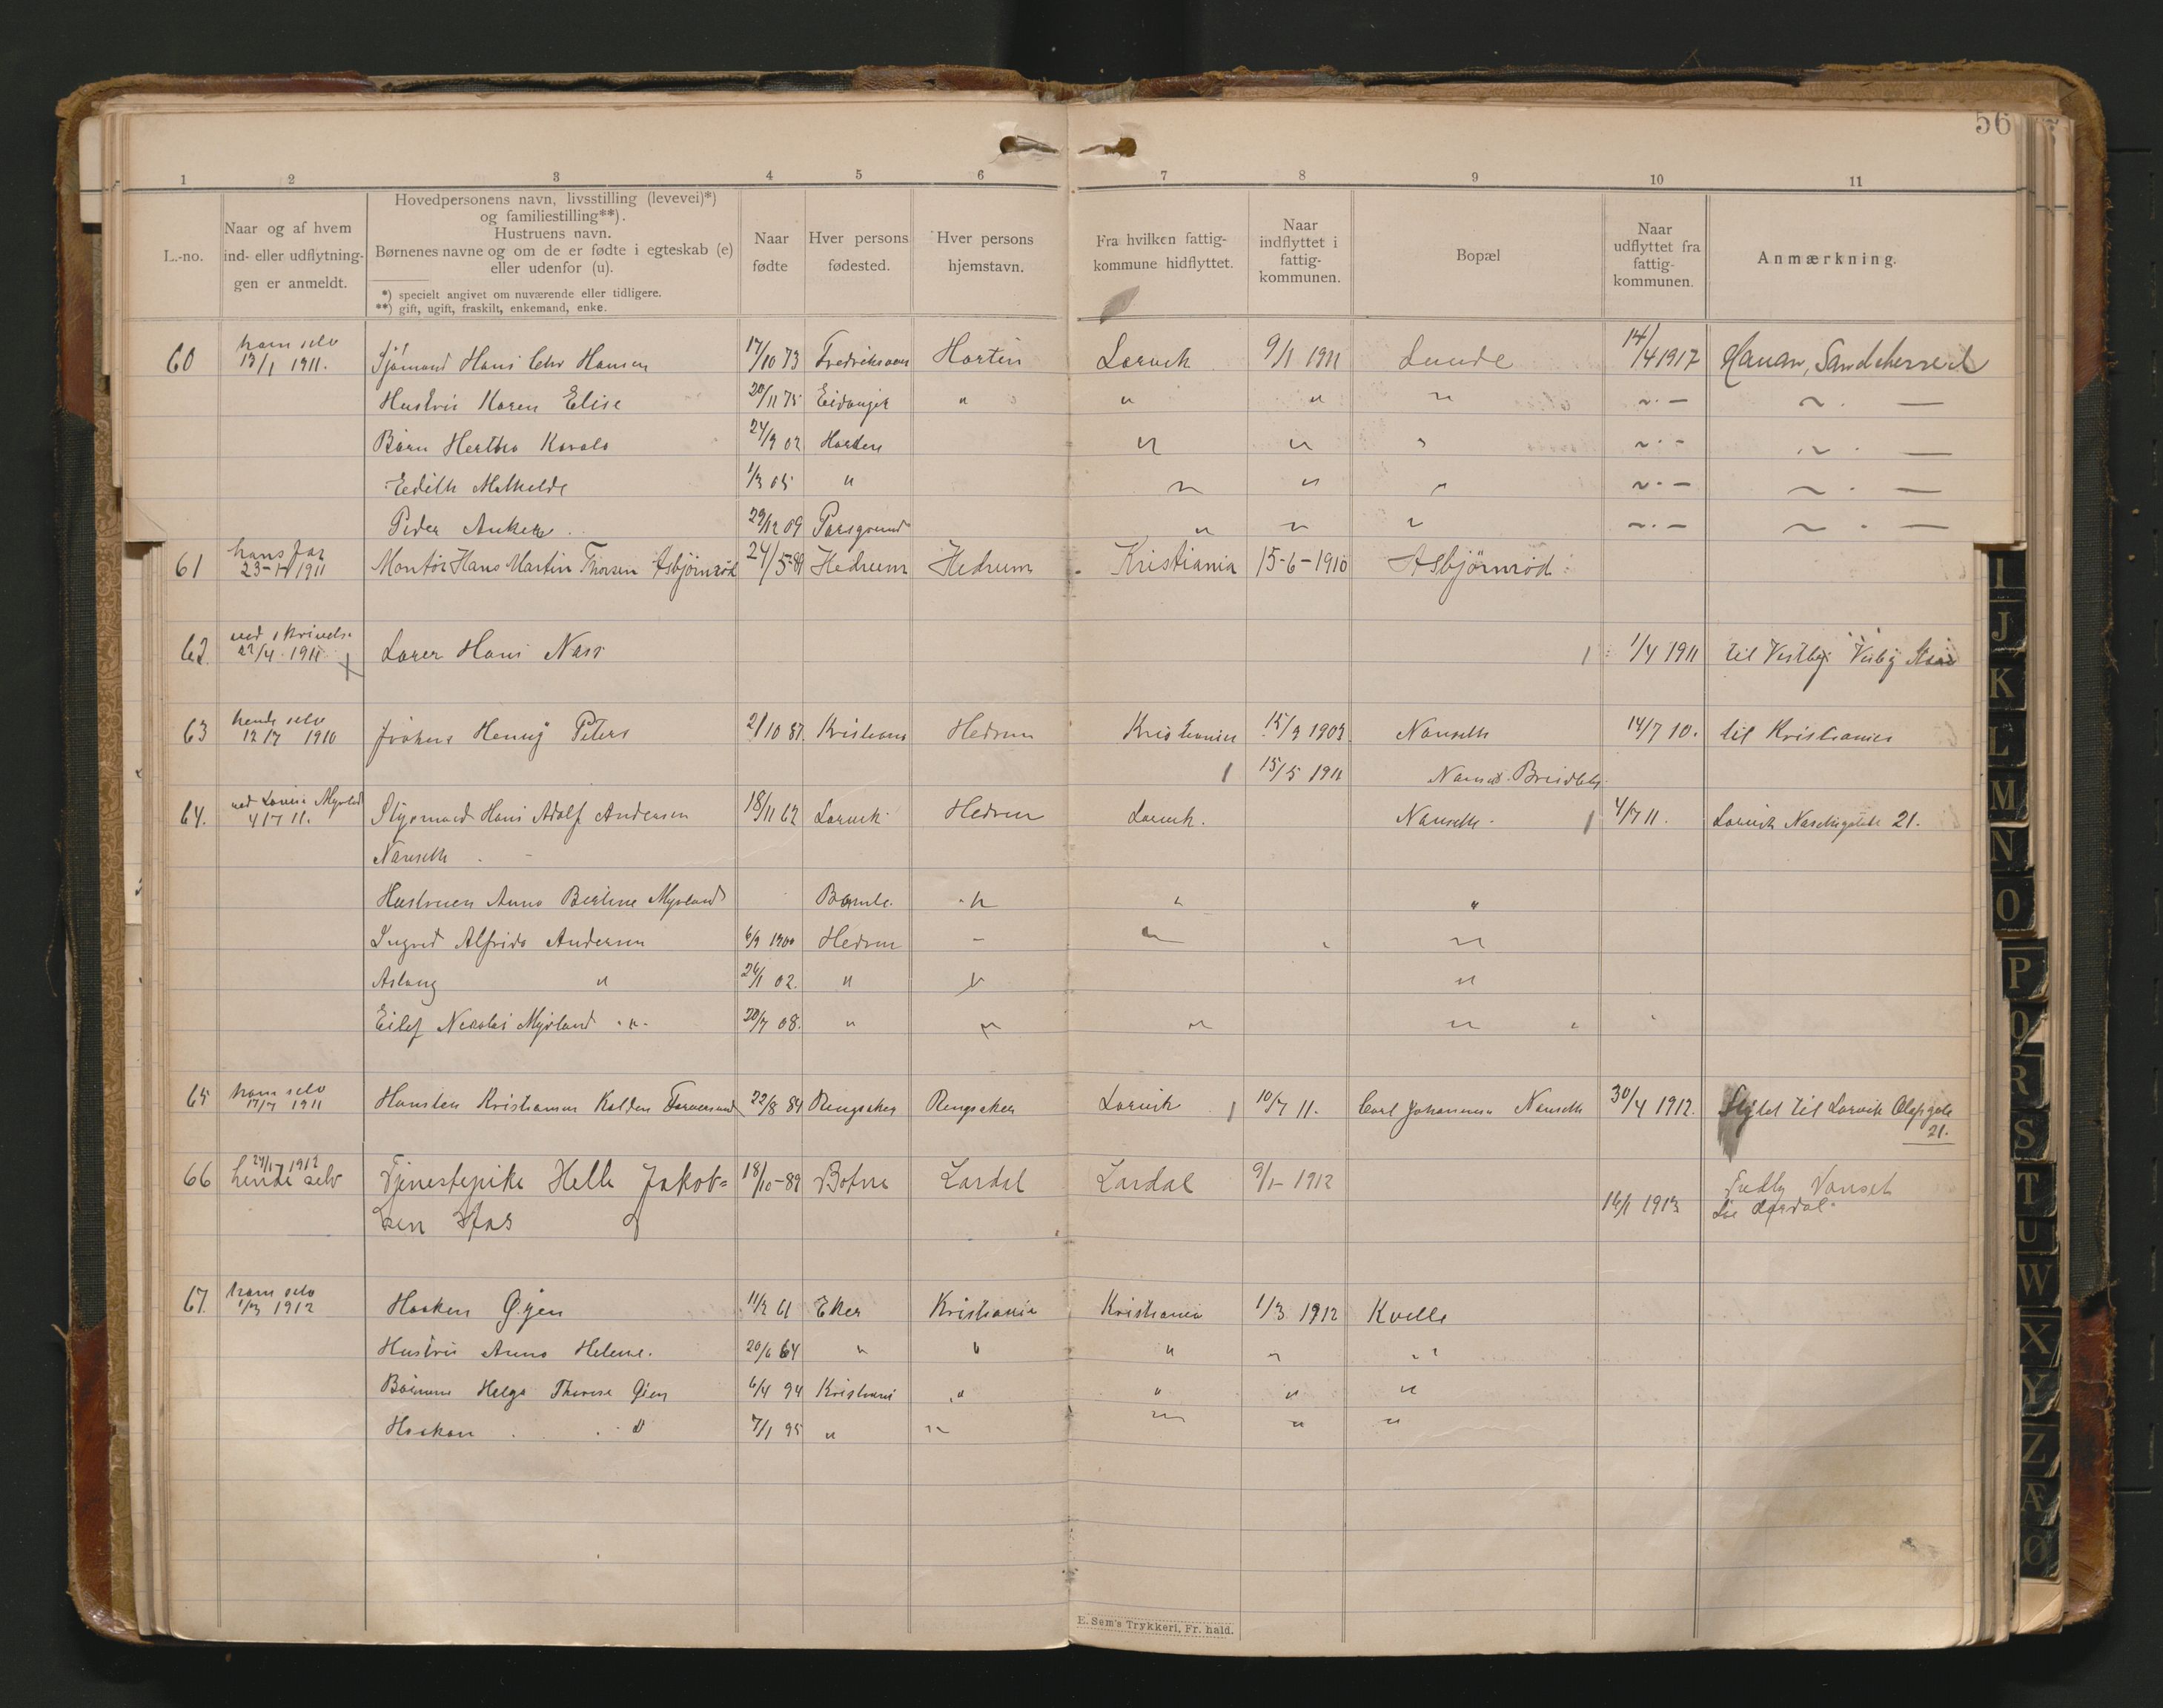 56
1 2 3 4 5 6 7 8 9 10 11
L.-no.
Naar og af hvem ind- eller udflytningen er anmeldt.
Hovedpersonens navn, livsstilling (levevei)*)
og familiestilling**).
Hustruens navn.
Børnenes navne og om de er fødte i egteskab (e)
eller udenfor (u).
*) specielt angivet om nuværende eller tidligere.
**) gift, ugift, fraskilt, enkemand, enke.
Naar fødte
Hver persons fødested.
Hver persons hjemstavn.
Fra hvilken fattigkommune hidflyttet.
Naar indflyttet i fattigkommunen.
Bopæl
Naar udflyttet fra fattigkommunen.
Anmærkning.
60 ham selv 13/1 1911. Sjömand Hans Chr Hansen 17/10 73 Horten Larvik 9/1 1911 Lunde 14/4 1912 Sandeherred
Hustru Karen Elise 20/11 75 Eidanger " " " " ~·— ~·—
Börn Hertha 24/9 02 Horten " " " ~·— ~·—
Edith Mathilde 1/3 05 " " " " ~·— ~·—
Peder Anker 29/12 09 Porsgrund " " " ~·— ~·—
61 hans far 1911 Montör Hans Martin Thorsen Asbjörnröd 24/5-89 Hedrum Hedrum Kristiania 15-6-1910 Asbjörnröd
62. ved 22/4 1911 Lærer Hans Næss 1/4 1911 til Vestby
63 hende selv 12/7 1910 Henny Peters 21/10 87. Kristiania Hedrum Kristiania 15/9 1909 Nanseth 14/7 10. til Kristiania
15/5 1911
64. ved Myrland 4/7 11. Styrmand Hans Adolf Andersen 18/11 62 Larvik Hedrum Larvik. Nanseth. 4/7 11. Larvik 21.
Nanseth
Hustruen Anna Myrland Bamle " " "
Ingrid Alfrida Andersen 6/9 1900 Hedrum - " "
Aslaug " 26/1 02. " " "
Eilef Nicolai Myrland " 20/7 08. " " " "
65 ham selv 17/7 1911 Kristiansen 22/8 84 Ringsaker Ringsaker Larvik 10/7 11. Carl Johannesen Nanseth 30/4 1912. til Larvik
21.
66 24/1 1912 hende selv Tjenestepike Helle Jakob= 18/10-89 Botne Lardal Lardal 9/1-1912
sen 16/1 1913 Lardal
67. ham selv 1/3 1912 Haaken Øijen 11/2 61 Eker Kristiania Kristiania 1/3 1912 Kvelle
Hustru Anna Helene. 20/6 64 " " " " "
Börnene Helga Therese Øien 6/4 94 Kristiania " " " "
Haakon " 7/1 95 " " " " "
E. Sem's Trykkeri, Fr. hald.
I
J
K
L
M
N
O
P
Q
R
S
T
U
W
X
Y
Z
Æ
Ø